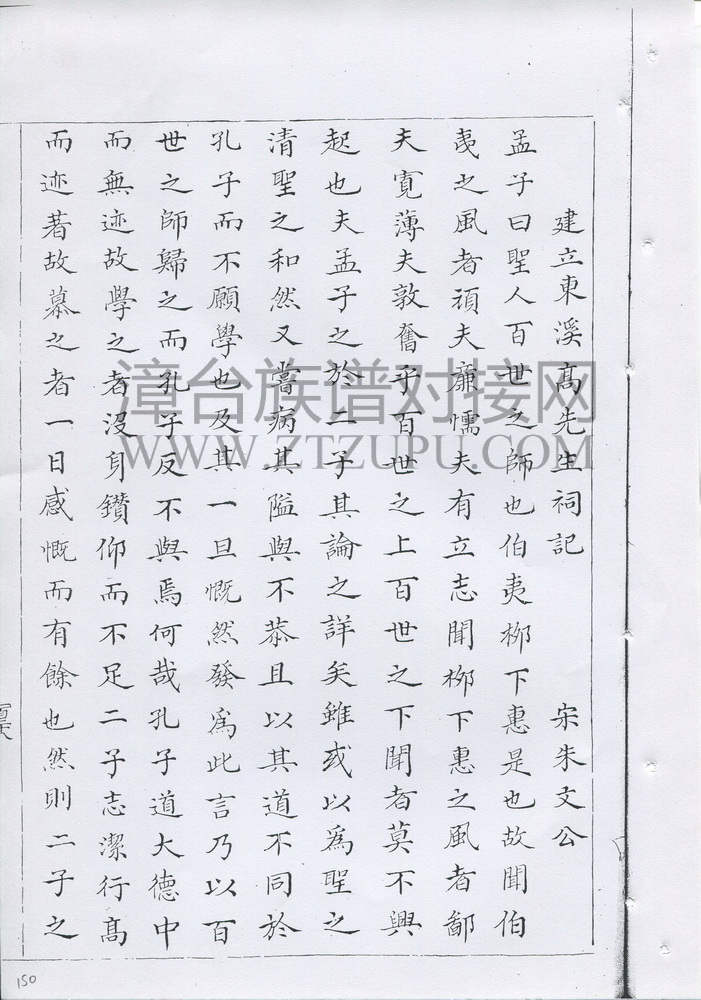 建立東溪高先生祠記 宋朱文公
孟子曰聖人百世之師也伯夷栁下惠是也故聞伯
夷之風者頑夫亷懦夫有立志聞栁下惠之風者鄙
夫寬薄夫敦奮乎百世之上百世之下聞者莫不興
起也夫孟子之於二子其論之詳矣雖或以為聖之
清聖之和然又嘗病其隘與不恭且以其道不同於
孔子而不願學也及其一旦慨然發為此言乃以百
世之師歸之而孔子反不與焉何哉孔子道大德中
而無迹故學之者沒身鑽仰而不足二子志潔行高
而迹著故慕之者一日感慨而有餘也然則二子之
漳台族谱对接网
WWW.ZTZUPU.COM
150